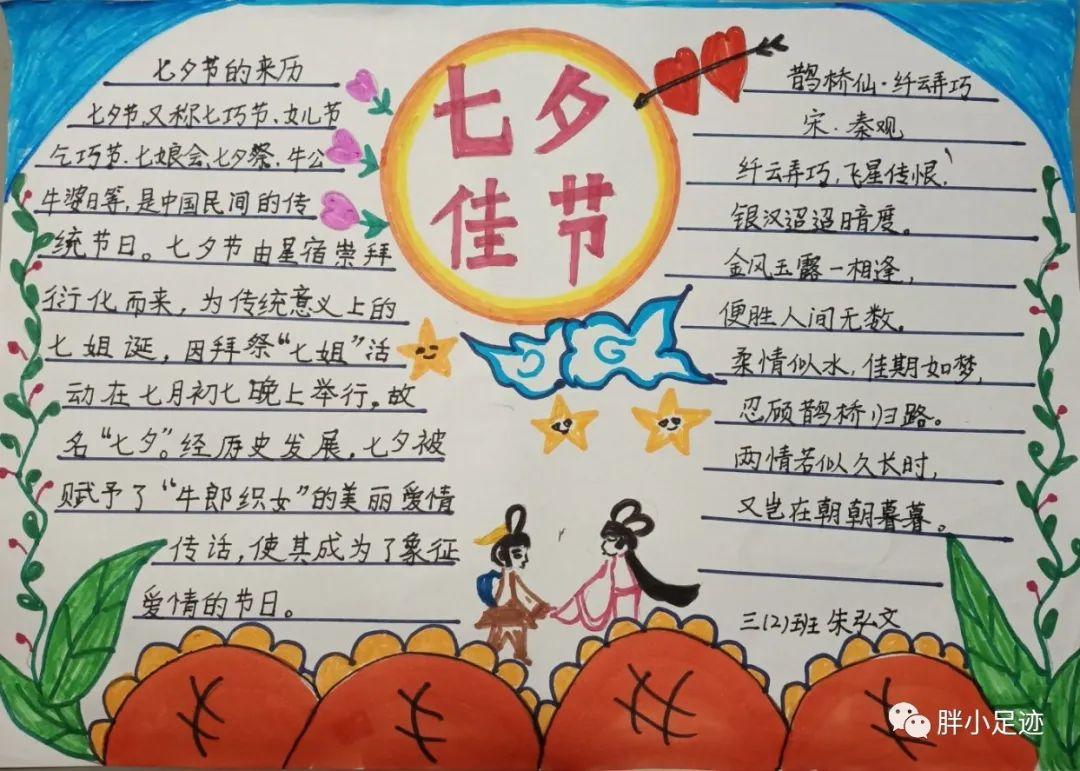 七夕佳节
七夕节的来历
七夕节,又称七巧节、女儿节
乞巧节、七娘会、七夕祭、牛公
牛婆日等,是中国民间的传
统节日。七夕节由星宿崇拜
衍化而来,为传统意义上的
七姐诞,因拜祭“七姐”活
动在七月初七晚上举行,故
名“七夕”。经历史发展,七夕被
赋予了“牛郎织女”的美丽爱情
传话,使其成为了象征
爱情的节日。
鹊桥仙·纤云弄巧
宋·秦观
纤云弄巧,飞星传恨,
银汉迢迢暗度。
金风玉露一相逢,
便胜人间无数。
柔情似水,佳期如梦,
忍顾鹊桥归路。
两情若似久长时,
又岂在朝朝暮暮。
三(2)班 朱弘文
胖小足迹